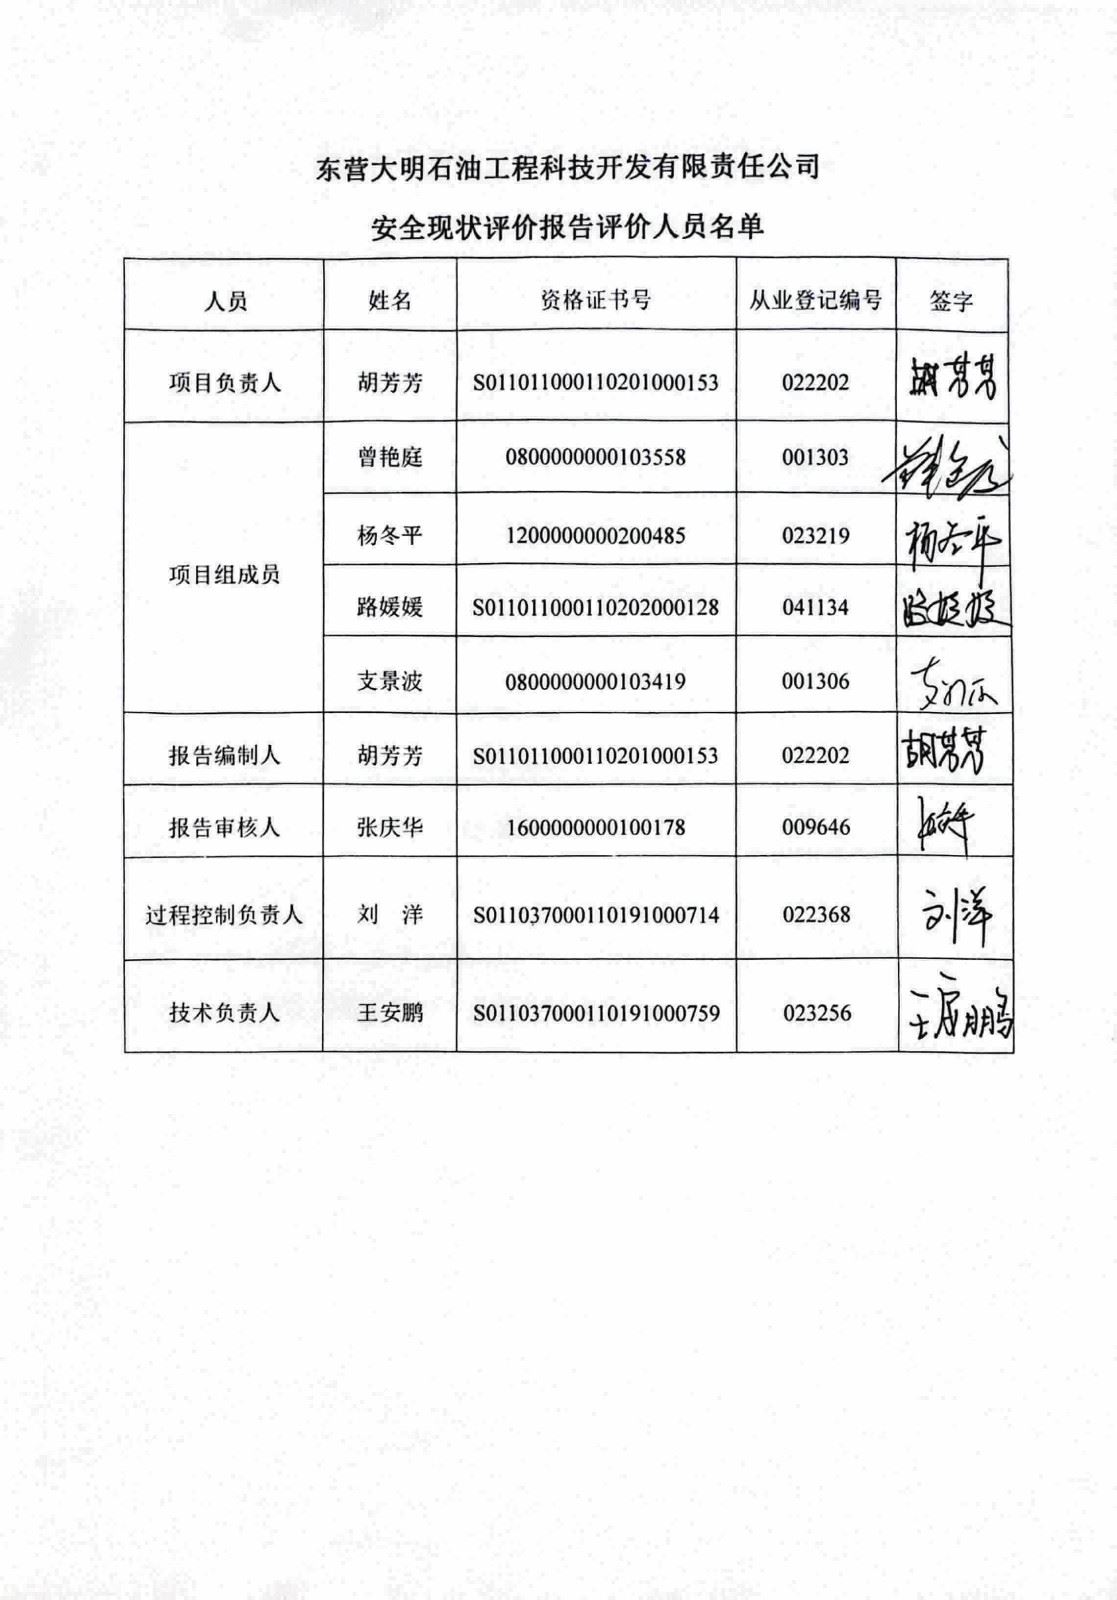 东营大明石油工程科技开发有限责任公司
安全现状评价报告评价人员名单
人员 姓名 资格证书号 从业登记编号 签字
项目负责人 胡芳芳 S011011000110201000153 022202 胡芳芳
项目组成员
曾艳庭 0800000000103558 001303
杨冬平 1200000000200485 023219 杨冬平
路媛媛 S011011000110202000128 041134 路媛媛
支景波 0800000000103419 001306
报告编制人 胡芳芳 S011011000110201000153 022202 胡芳芳
报告审核人 张庆华 1600000000100178 009646
过程控制负责人 刘 洋 S011037000110191000714 022368 刘洋
技术负责人 王安鹏 S011037000110191000759 023256 王安鹏